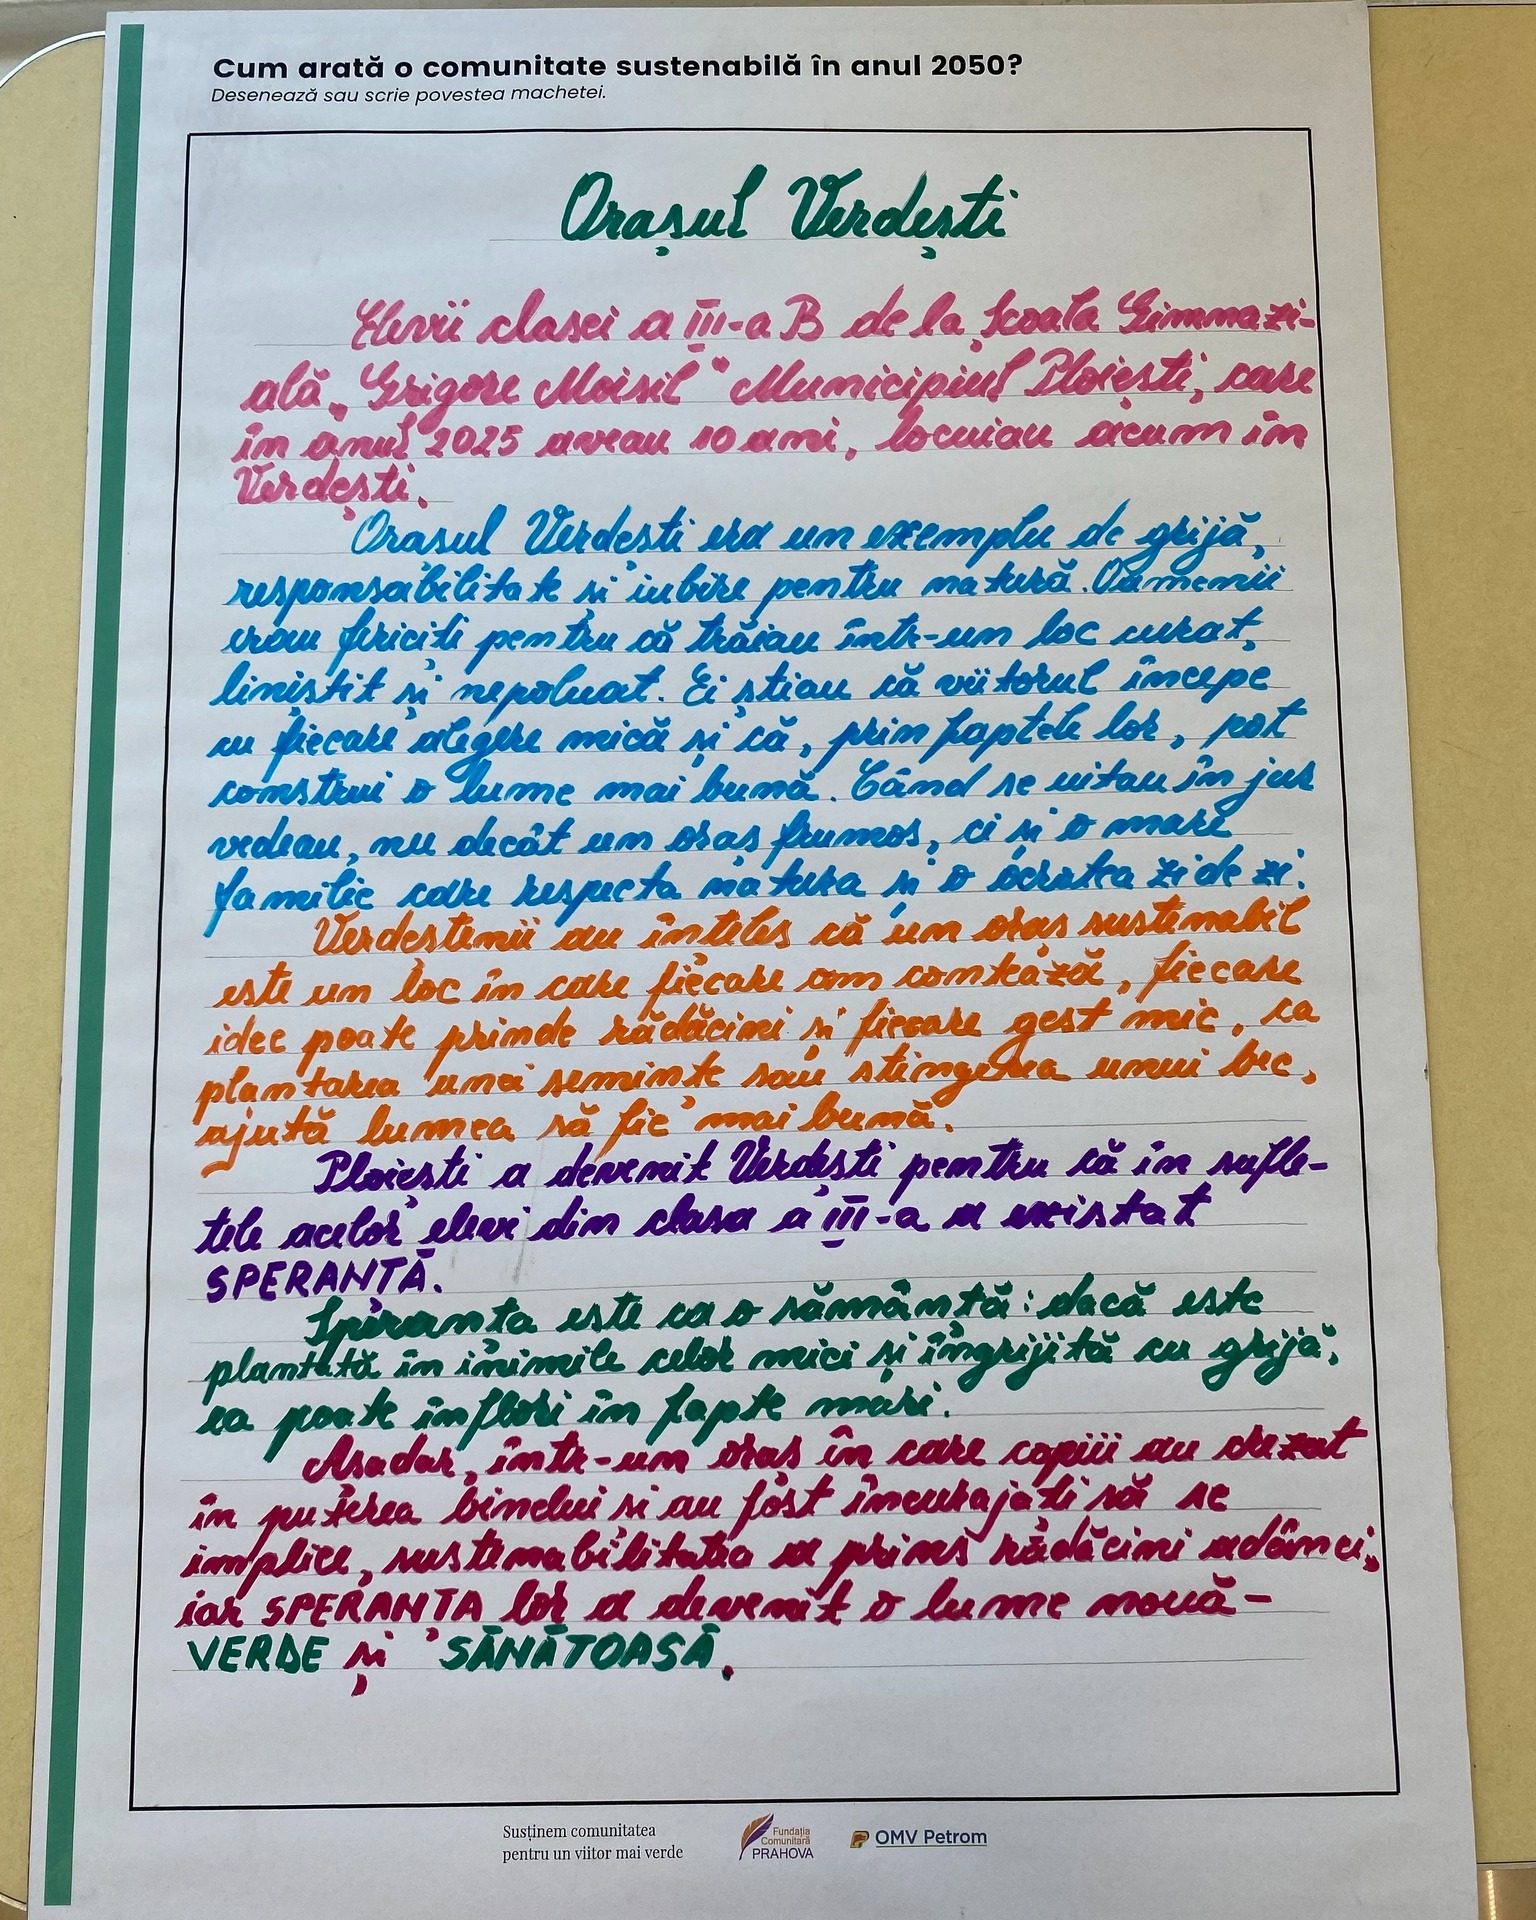 Cum arată o comunitate sustenabilă în anul 2050?
Desenează sau scrie povestea machetei.
Orașul Verdești
Elevii clasei a III-a B de la Școala Gimnazi-
ală „Grigore Moisil" Municipiul Ploiești, care
în anul 2025 aveau 10 ani, locuiau acum în
Verdești.
Orașul Verdești era un exemplu de grijă,
responsabilitate și iubire pentru natură. Oamenii
erau fericiți pentru că trăiau într-un loc curat,
liniștit și nepoluat. Ei știau că viitorul începe
cu fiecare alegere mică și că, prin faptele lor, pot
construi o lume mai bună. Când se uitau în jur
vedeau, nu decât un oraș frumos, ci și o mare
familie care respecta natura și o ocrotea zi de zi.
Verdeștenii au înțeles că un oraș sustenabil
este un loc în care fiecare om contează, fiecare
idee poate prinde rădăcini și fiecare gest mic, ca
plantarea unei semințe sau stingerea unui bec,
ajută lumea să fie mai bună.
Ploiești a devenit Verdești pentru că în sufle-
tele acelor elevi din clasa a III-a a existat
SPERANȚĂ.
Speranța este ca o sămânță: dacă este
plantată în inimile celor mici și îngrijită cu grijă,
ea poate înflori în fapte mari.
Așadar, într-un oraș în care copiii au crezut
în puterea binelui și au fost încurajați să se
implice, sustenabilitatea a prins rădăcini adânci,
iar SPERANȚA lor a devenit o lume nouă-
VERDE și SĂNĂTOASĂ.
Susținem comunitatea
pentru un viitor mai verde
Fundația
Comunitară
PRAHOVA
OMV Petrom